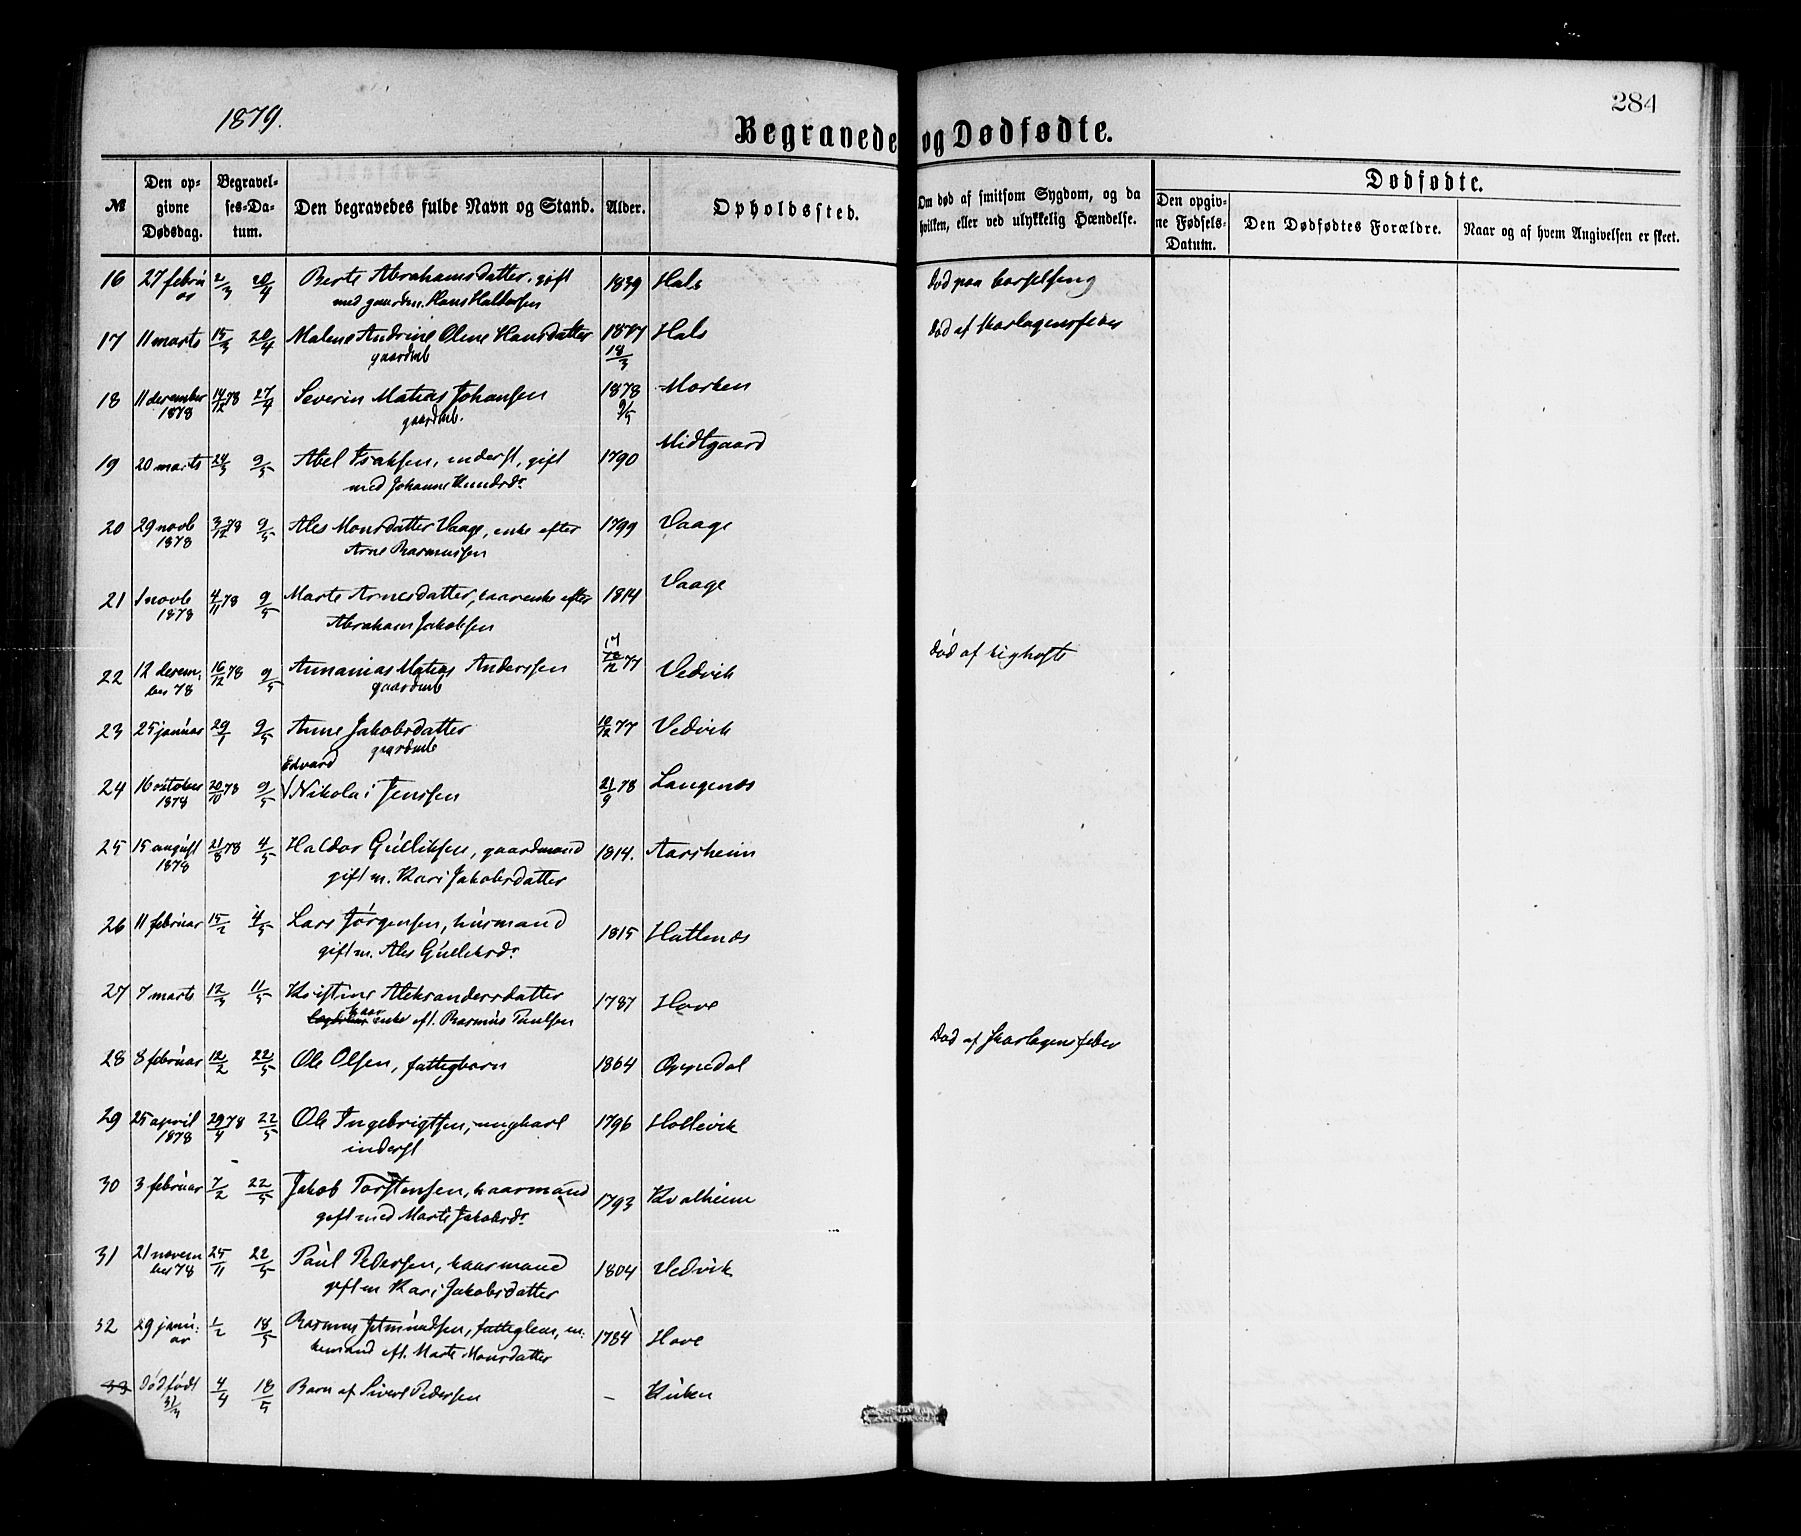 1879.
284
Begravede og Dødfødte.
№
Den opgivne Dødsdag.
Begravelses-Datum.
Den begravedes fulde Navn og Stand.
Alder.
Opholdssted.
Om død af smitsom Sygdom, og da hvilken, eller ved ulykkelig Hændelse.
Dødfødte.
Den opgivne Fødsels-Datum.
Den Dødfødtes Forældre.
Naar og af hvem Angivelsen er skeet.
16 27 februar 2/3 20/4 Berte Abrahamsdatter, gift 1839 Hals død paa barselseng
med gaardm. Hans Haldorsen
17 11 marts 15/3 20/4 Malene Andrine Oline Hansdatter 1877 Hals død af skarlagensfeber
gaardmb 18/3
18 11 december 1878 14/12 78 27/4 Severin Matias Johansen 1878 Morken
gaardmb. 9/5
19 20 marts 24/3 9/5 Abel Isaksen, inderst, gift 1790 Midtgaard
med Johanne Knudsdr
20 29 novb 1878 3/12 78 9/5 Ales Monsdatter Vaage, enke efter 1799 Vaage
Arne Rasmussen
21 1 novb 1878 4/11 78 9/5 Marte Arnesdatter, kaarenke efter 1814 Vaage
Abraham Jakobsen
22 12 december 78 16/12 78 9/5 Annanias Matias Anderssen 77 Vedvik død af kighoste
gaardmb
23 25 januar 29/1 9/5 Anne Jakobsdatter 10/12 77 Vedvik
gaardmb
24 16 october 1878 20/10 78 9/5 Edvard Nikolai Jenssen 21/9 78 Langenes
25 15 august 1878 21/8 78 4/5 Haldor Gulliksen, gaardmand 1814. Aarsheim
gift m. Kari Jakobsdatter
26 11 februar 15/2 4/5 Lars Jørgensen, husmand 1815 Hatlenes
gift m. Ales Gulleksdr
27 7 marts 12/3 11/5 Kristine Aleksandersdatter 1787 Hove
kaar enke eft. Rasmus Paulsen
28 8 februar 12/2 22/5 Ole Olsen, fattigbarn 1864 Oppedal Død af skarlagensfeber
29 25 april 1878 29/4 78 22/5 Ole Ingebrigtsen, ungkarl 1796 Hollevik
inderst
30 3 februar 7/2 22/5 Jakob Torstensen, kaarmand 1793 Kvalheim
gift med Marte Jakobsdr
31 21 november 78 25/11 22/5 Paul Pedersen, kaarmand 1804 Vedvik
gift m Kari Jakobsdatter
32 29 januar 1/2 18/5 Rasmus Jetmundsen, fattiglem, enkemand eft. Marte Monsdatter 1784 Hove
33 Dødfødt 31/3 4/4 18/5 Barn af Sivert Pedersen –